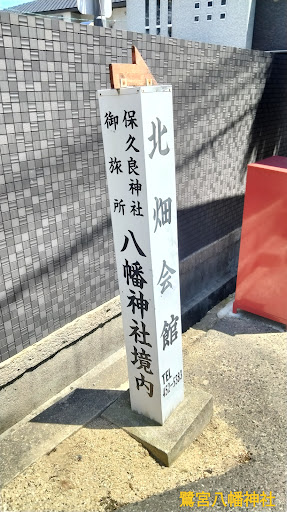 保久良神社
御旅所
八幡神社境内
北畑会館
TEL
452-3383
鷺宮八幡神社